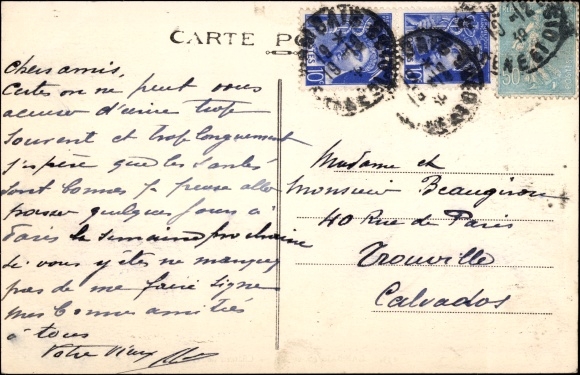 CARTE P
Chers amis,
Certes on ne peut vous
accuser d'écrire trop
souvent et trop longuement
J'espère que les santés
sont bonnes Je pense aller
passer quelques jours à
Paris la semaine prochaine
si vous y êtes ne manquez
pas de me faire signe
mes bonnes amitiés
à tous
Votre vieux
Madame et
Monsieur Beaugiron
40 Rue de Paris
Trouville
Calvados